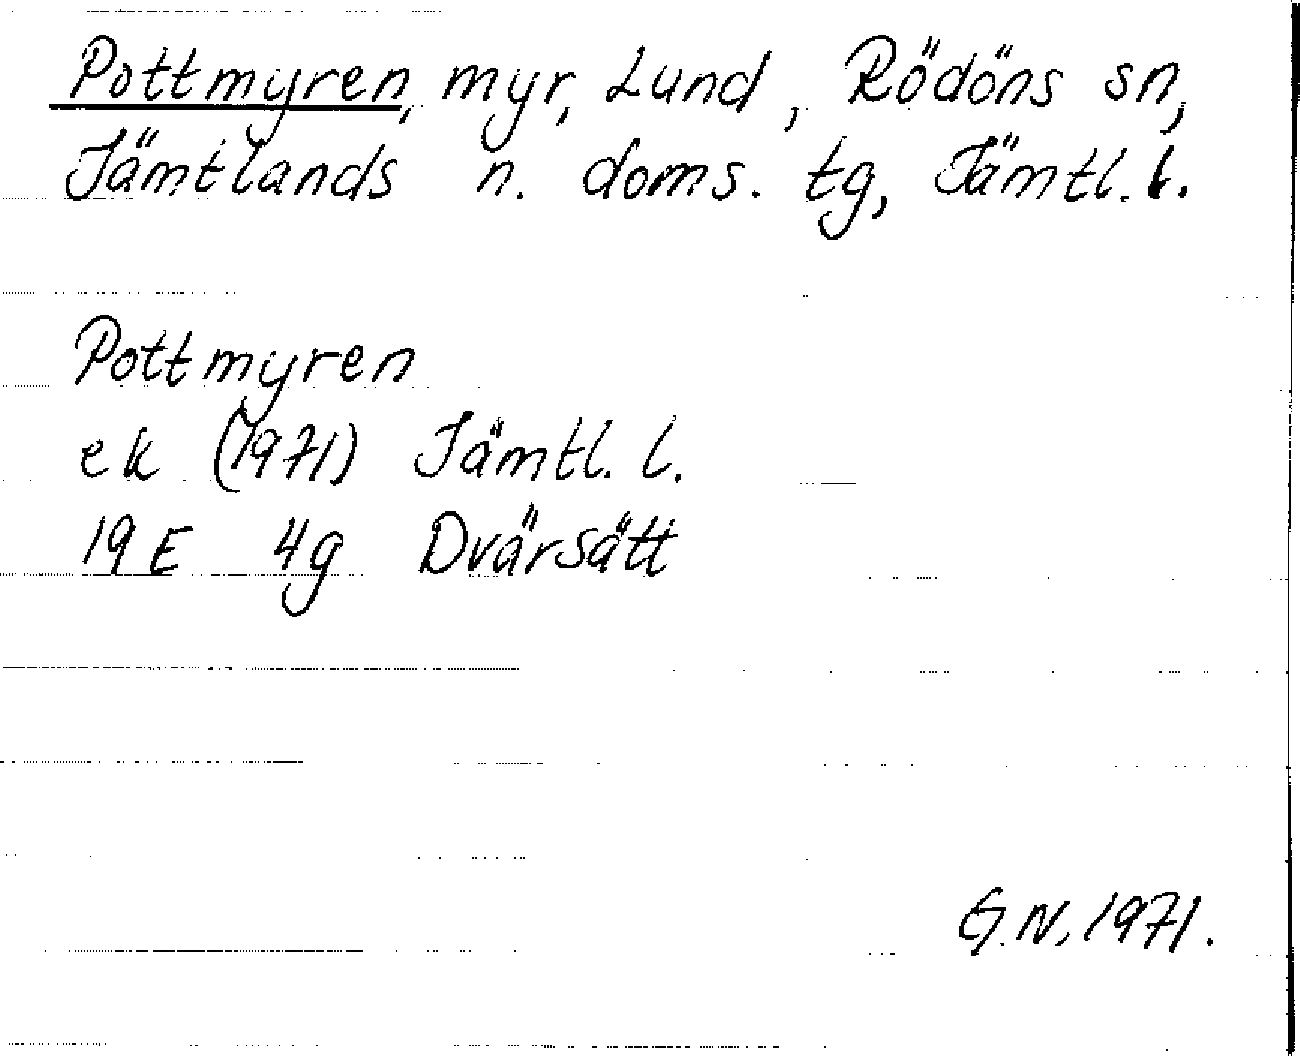 Pottmyren, myr, Lund, Rödöns sn,
Jämtlands n. doms. tg, Jämtl. l.
Pottmyren
ek (1971) Jämtl. l.
19 E 4g Dvärsätt
G.N, 1971.